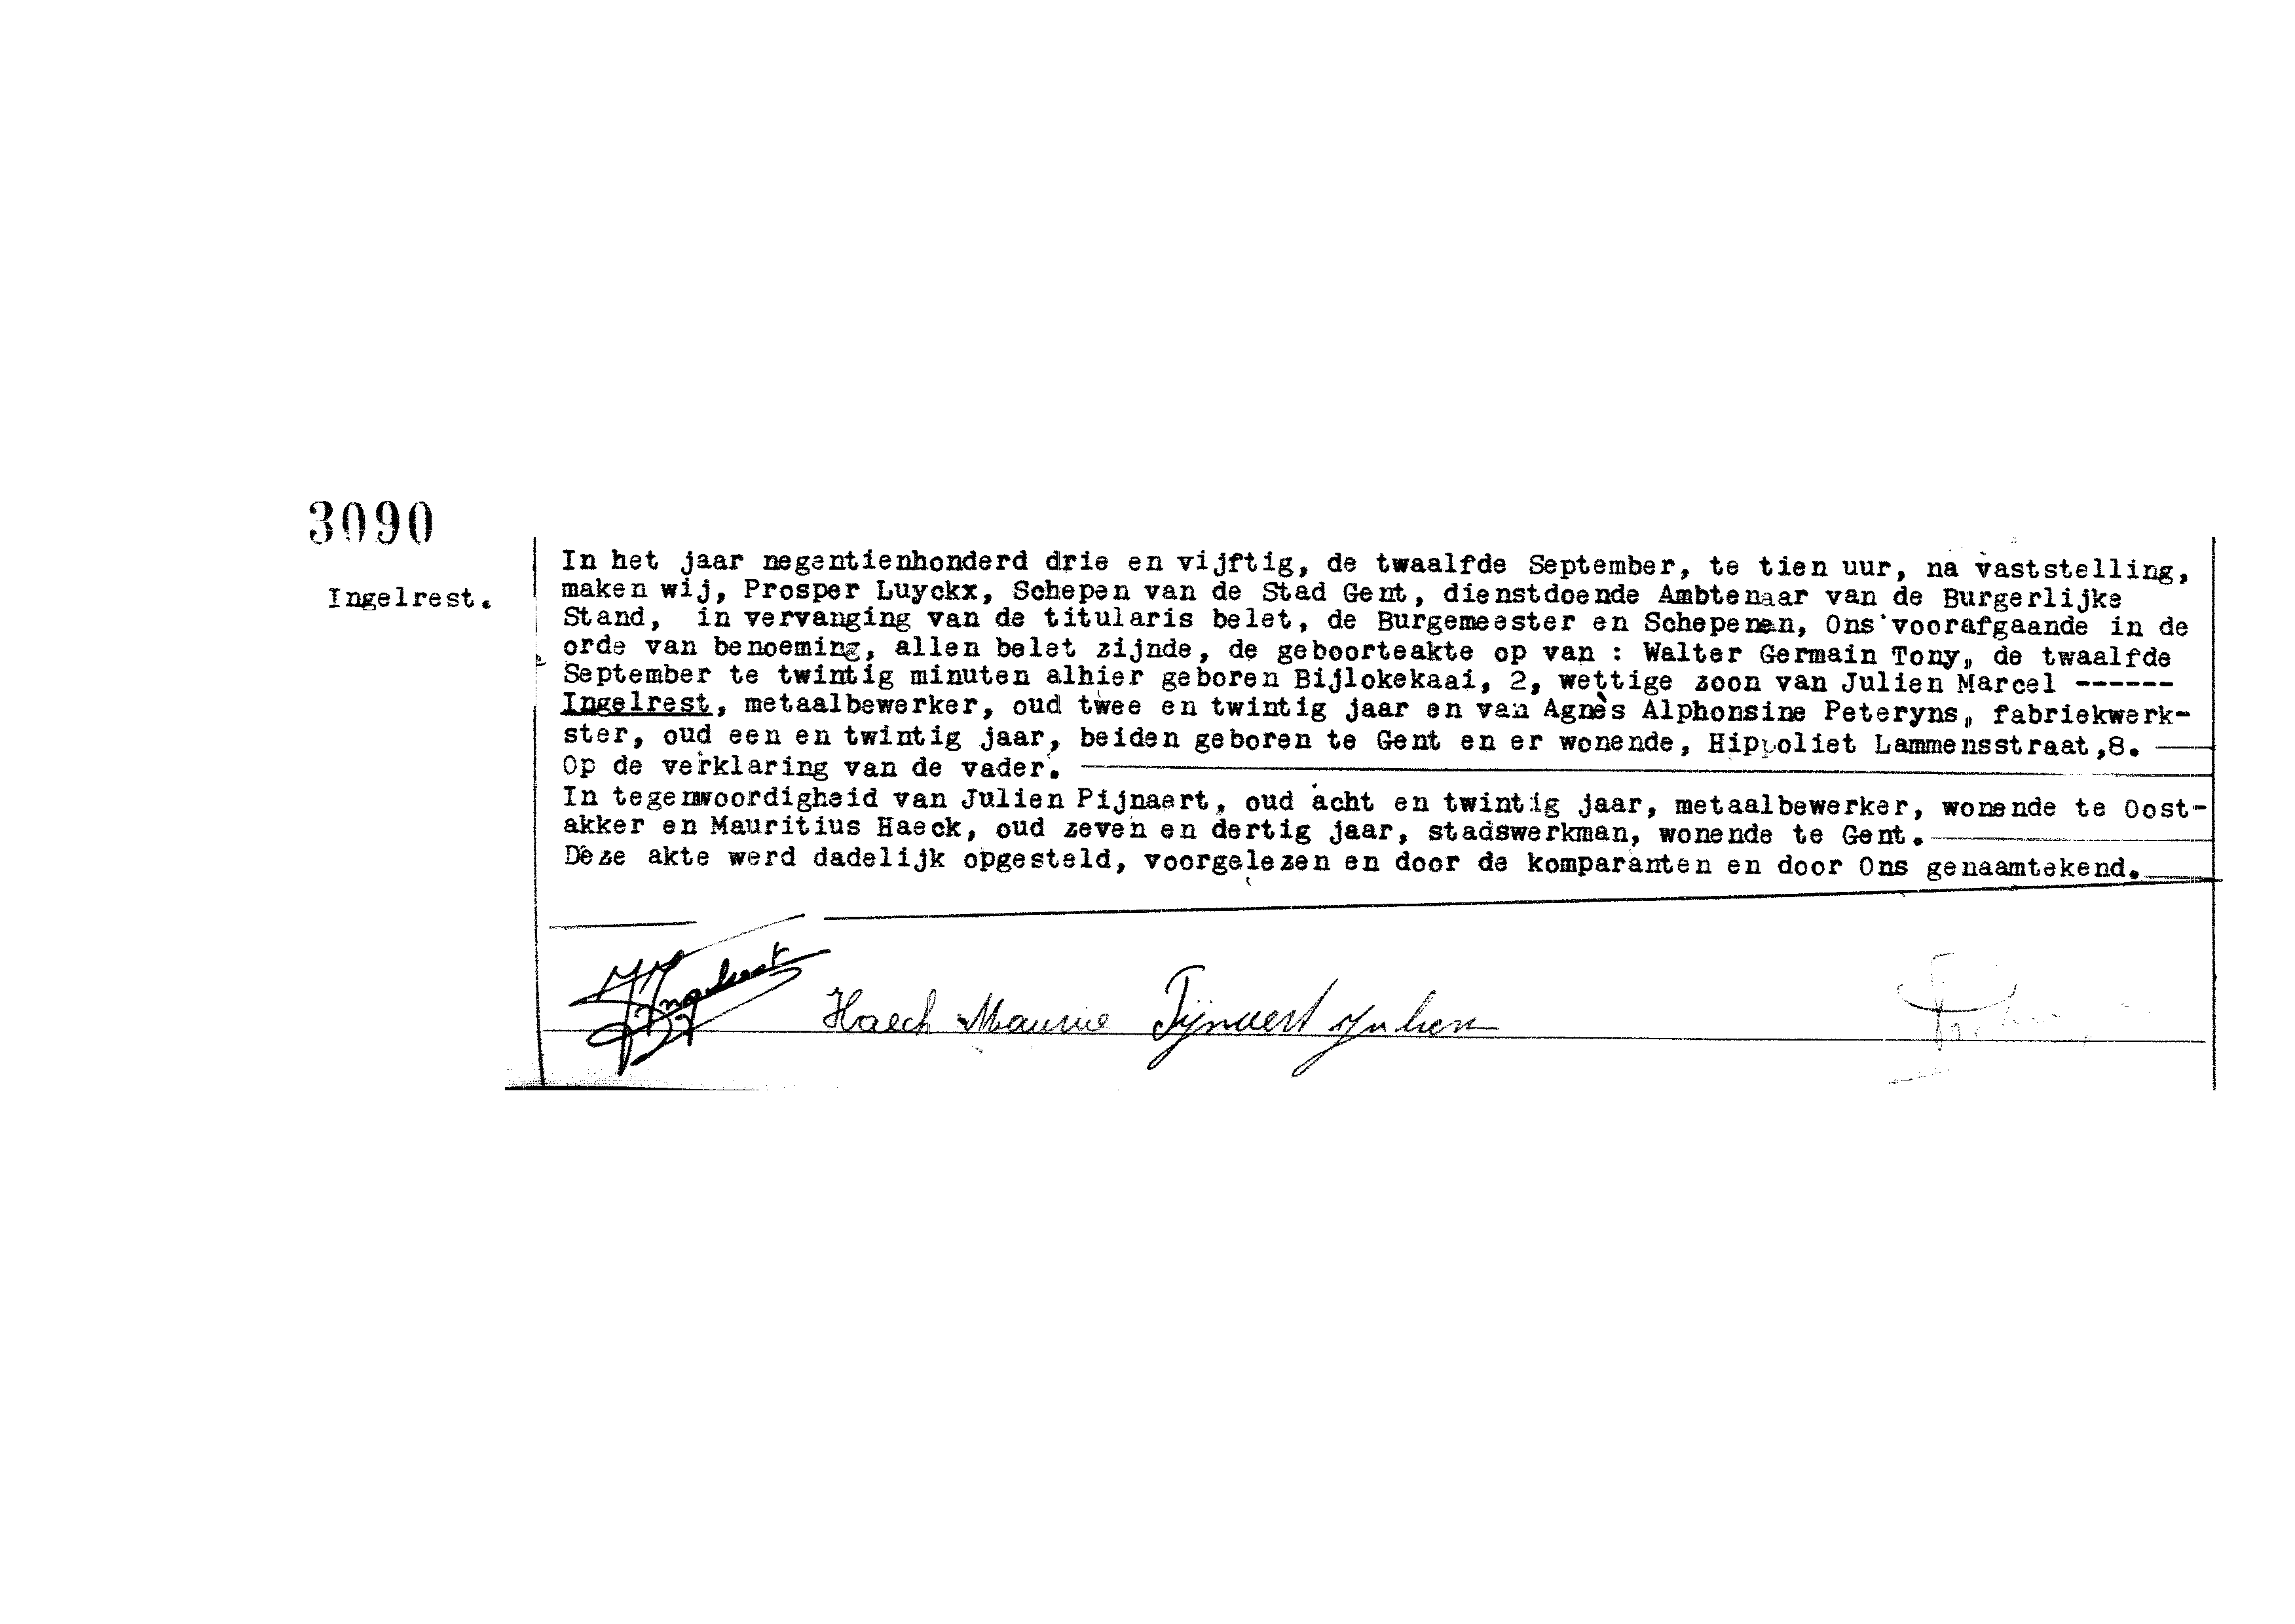 3090
Ingelrest.
In het jaar negentienhonderd drie en vijftig, de twaalfde September, te tien uur, na vaststelling,
maken wij, Prosper Luyckx, Schepen van de Stad Gent, dienstdoende Ambtenaar van de Burgerlijke
Stand, in vervanging van de titularis belet, de Burgemeester en Schepenen, Ons voorafgaande in de
orde van benoeming, allen belet zijnde, de geboorteakte op van : Walter Germain Tony, de twaalfde
September te twintig minuten alhier geboren Bijlokekaai, 2, wettige zoon van Julien Marcel ------
Ingelrest, metaalbewerker, oud twee en twintig jaar en van Agnès Alphonsine Peteryns, fabriekwerk-
ster, oud een en twintig jaar, beiden geboren te Gent en er wonende, Hippoliet Lammensstraat,8.
Op de verklaring van de vader.
In tegenwoordigheid van Julien Pijnaert, oud acht en twintig jaar, metaalbewerker, wonende te Oost-
akker en Mauritius Haeck, oud zeven en dertig jaar, stadswerkman, wonende te Gent.
Deze akte werd dadelijk opgesteld, voorgelezen en door de komparanten en door Ons genaamtekend.
Ingelrest Haeck Maurice Pijnaert Julien